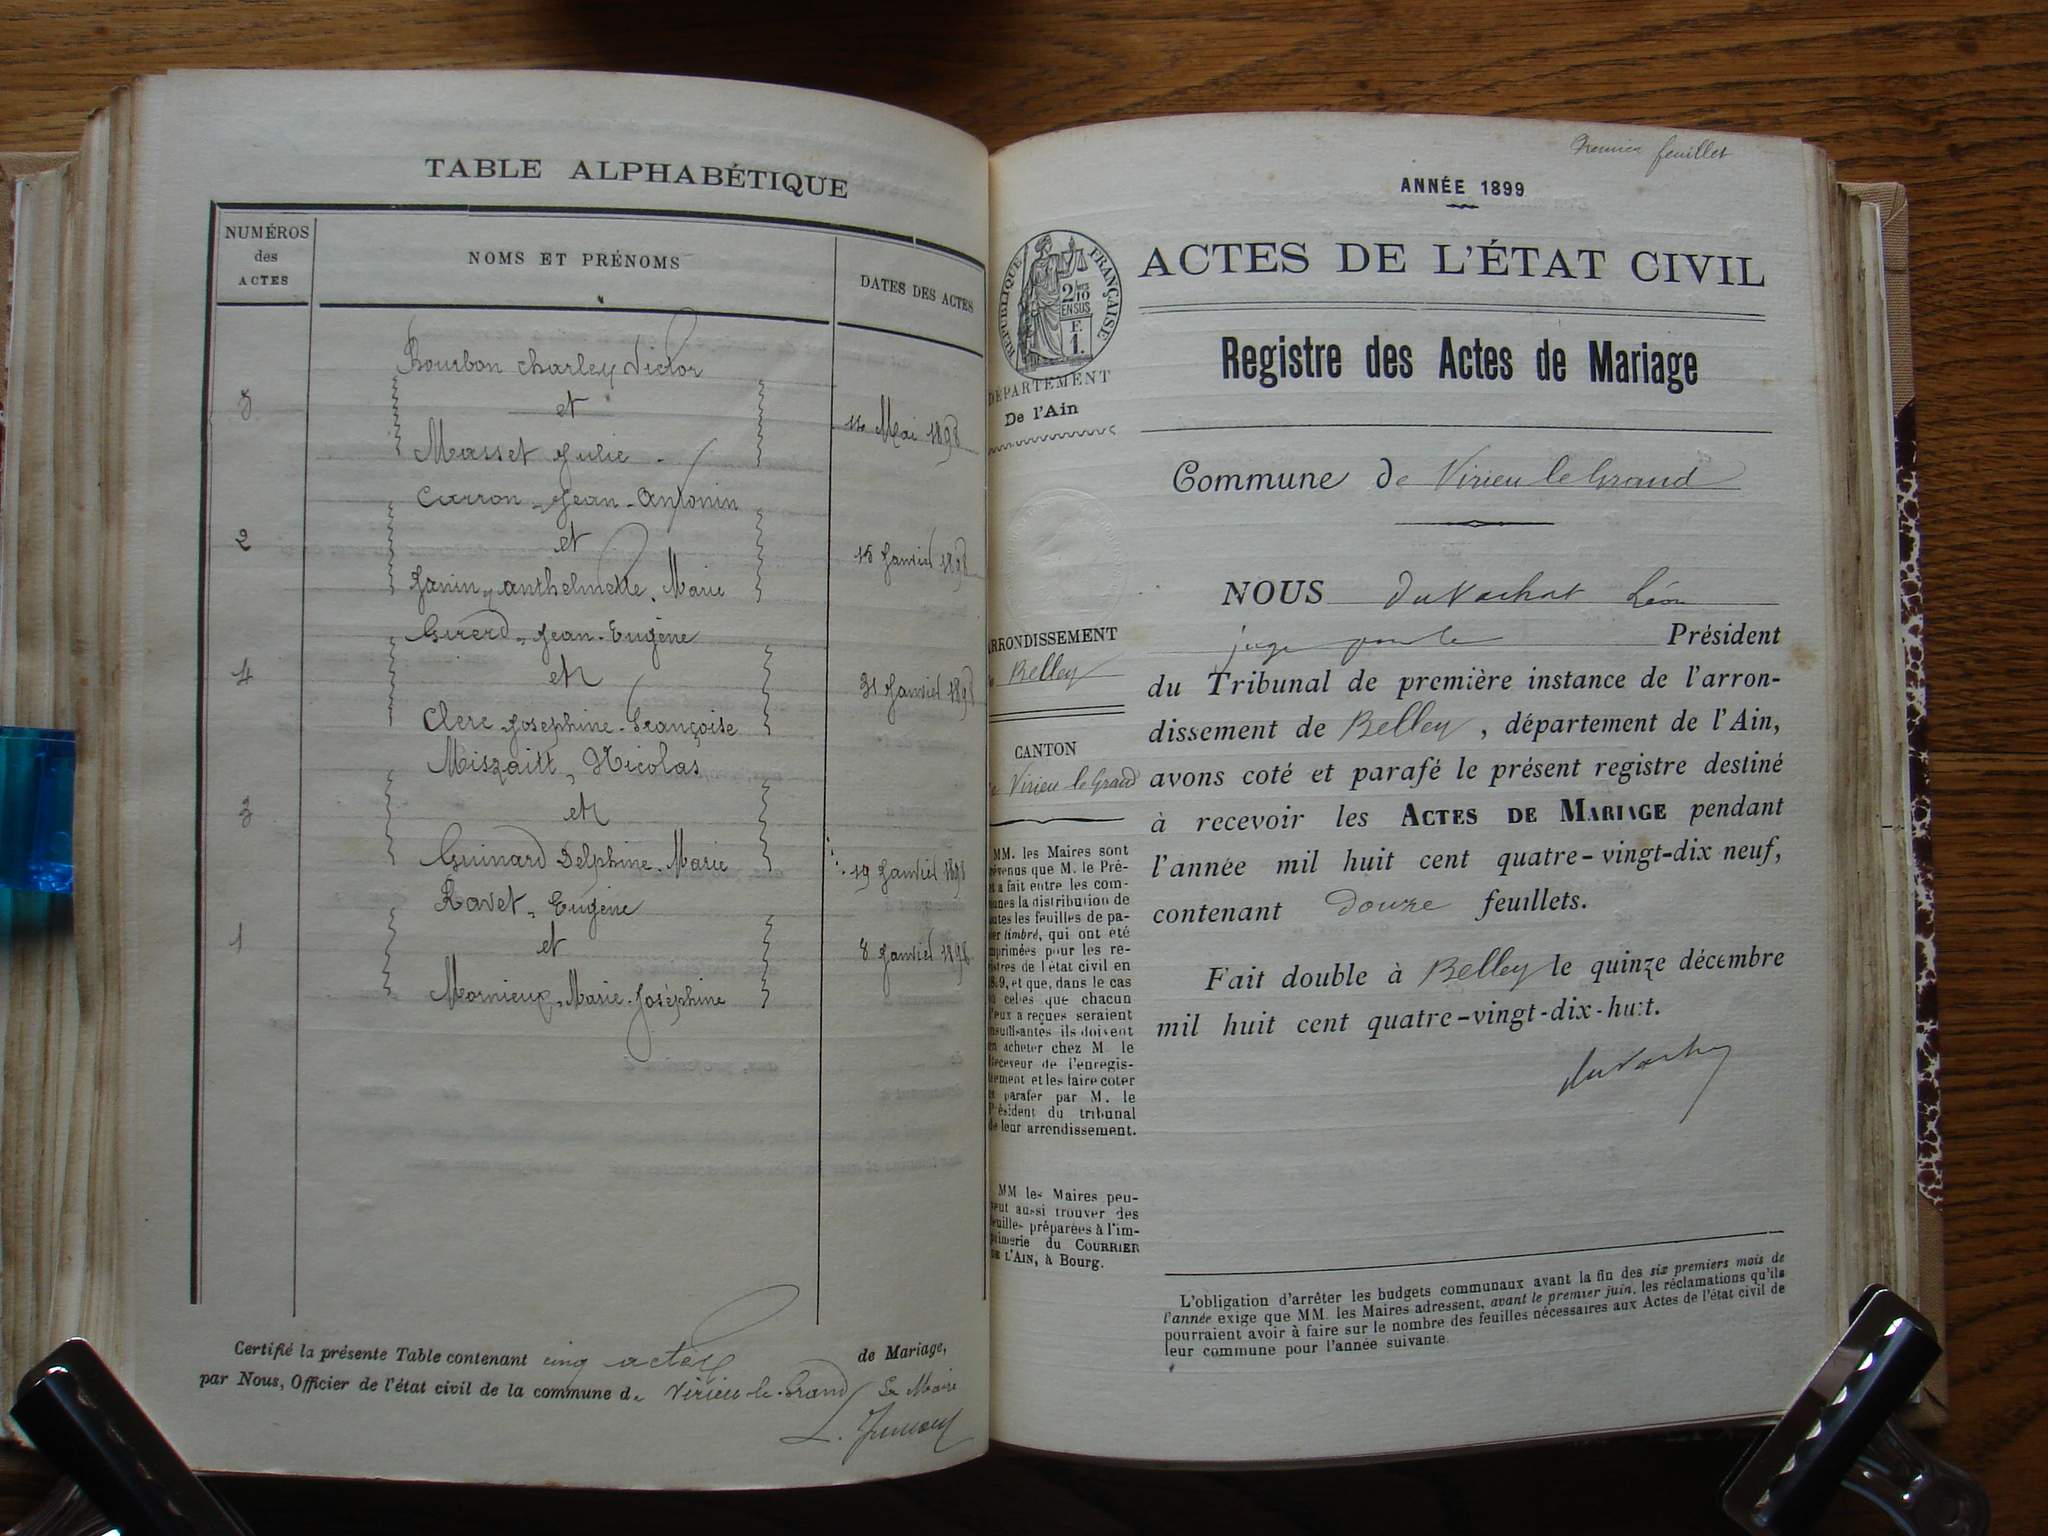 TABLE ALPHABÉTIQUE
NUMÉROS
des
ACTES
NOMS ET PRÉNOMS
DATES DES ACTES
Bourbon Charles Victor
5
et
11 Mai 1898
Masset Julie
Carron Jean-Antonin
2
et
15 Janvier 1898
Janin Anthelmette Marie
Girerd Jean-Eugène
4
et
31 Janvier 1898
Clerc Josephine-Françoise
Miszaitt Nicolas
3
et
Guinard Delphine-Marie
19 Janvier 1898
Ravet Eugène
1
et
8 Janvier 1898
Mornieux Marie-Joséphine
Certifié la présente Table contenant cinq actes de Mariage,
par Nous, Officier de l'état civil de la commune de Virieu-le-Grand Le Maire
Premier feuillet
ANNÉE 1899
RÉPUBLIQUE FRANÇAISE
2/10
EN SUS
F.
1.
DÉPARTEMENT
De l'Ain
ARRONDISSEMENT
Belley
CANTON
Virieu le Grand
MM. les Maires sont
prévenus que M. le Pré-
et a fait entre les com-
munes la distribution de
toutes les feuilles de pa-
pier timbré, qui ont été
imprimées pour les re-
gistres de l'état civil en
1899, et que, dans le cas
où celles que chacun
d'eux a reçues seraient
insuffisantes ils doivent
en acheter chez M. le
Receveur de l'enregis-
trement et les faire coter
et parafer par M. le
Président du tribunal
de leur arrondissement.
MM les Maires peu-
vent aussi trouver des
feuilles préparées à l'im-
primerie du COURRIER
DE L'AIN, à Bourg.
ACTES DE L'ÉTAT CIVIL
Registre des Actes de Mariage
Commune de Virieu le Grand
NOUS Duvachat Léon
juge pour le Président
du Tribunal de première instance de l'arron-
dissement de Belley, département de l'Ain,
avons coté et parafé le présent registre destiné
à recevoir les ACTES DE MARIAGE pendant
l'année mil huit cent quatre-vingt-dix neuf,
contenant douze feuillets.
Fait double à Belley le quinze décembre
mil huit cent quatre-vingt-dix-huit.
Duvachat
L'obligation d'arrêter les budgets communaux avant la fin des six premiers mois de
l'année exige que MM. les Maires adressent, avant le premier juin, les réclamations qu'ils
pourraient avoir à faire sur le nombre des feuilles nécessaires aux Actes de l'état civil de
leur commune pour l'année suivante.